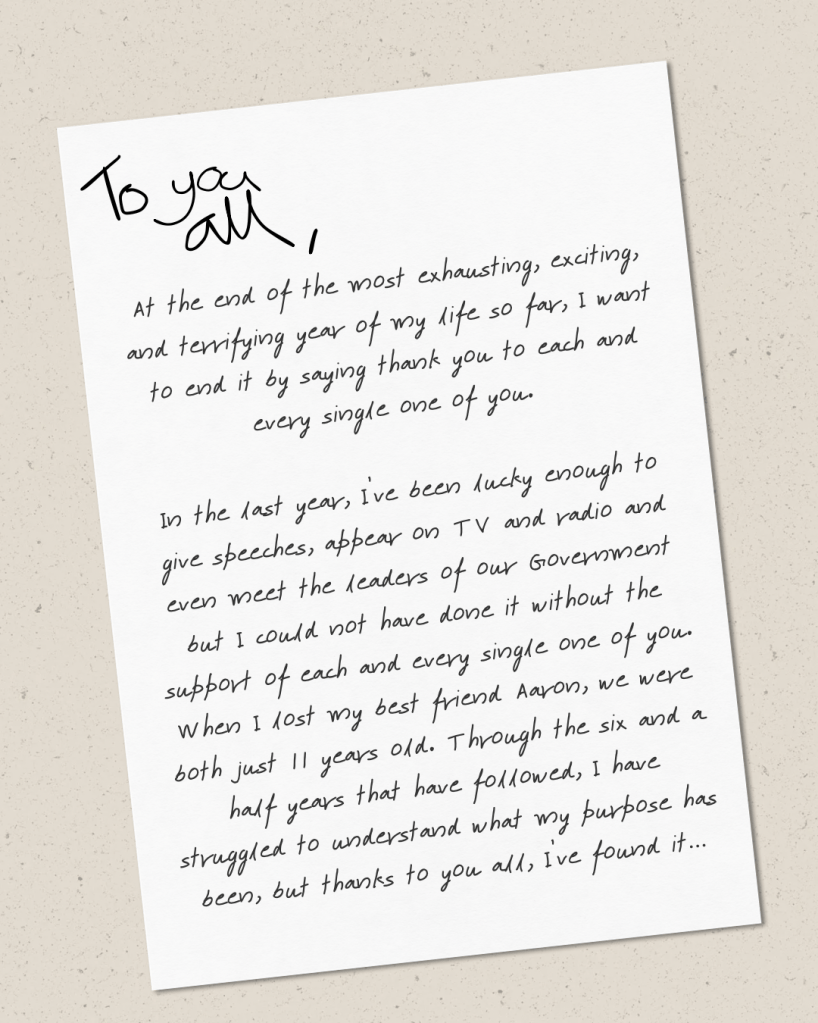 To you
all,
At the end of the most exhausting, exciting,
and terrifying year of my life so far, I want
to end it by saying thank you to each and
every single one of you.
In the last year, I've been lucky enough to
give speeches, appear on TV and radio and
even meet the leaders of our Government
but I could not have done it without the
support of each and every single one of you.
When I lost my best friend Aaron, we were
both just 11 years old. Through the six and a
half years that have followed, I have
struggled to understand what my purpose has
been, but thanks to you all, I've found it...